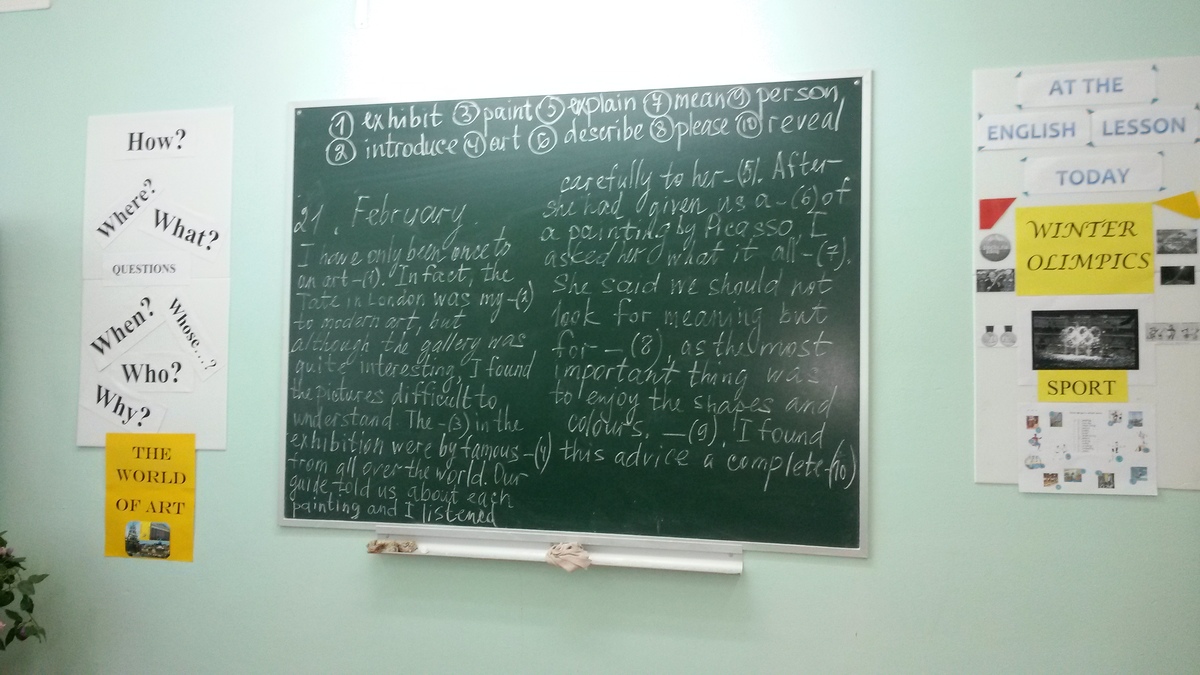 How?
Where?
What?
QUESTIONS
When?
Whose...?
Who?
Why?
THE
WORLD
OF ART
① exhibit ③ paint ⑤ explain ⑦ mean ⑨ person
② introduce ④ art ⑥ describe ⑧ please ⑩ reveal
21, February.
I have only been once to
an art -(1). In fact, the
Tate in London was my -(2)
to modern art, but
although the gallery was
quite interesting, I found
the pictures difficult to
understand. The -(3) in the
exhibition were by famous -(4)
from all over the world. Our
guide told us about each
painting and I listened
carefully to her -(5). After
she had given us a -(6) of
a painting by Picasso, I
asked her what it all -(7).
She said we should not
look for meaning but
for -(8), as the most
important thing was
to enjoy the shapes and
colours. -(9), I found
this advice a complete -(10)
AT THE
ENGLISH LESSON
TODAY
WINTER
OLIMPICS
SPORT